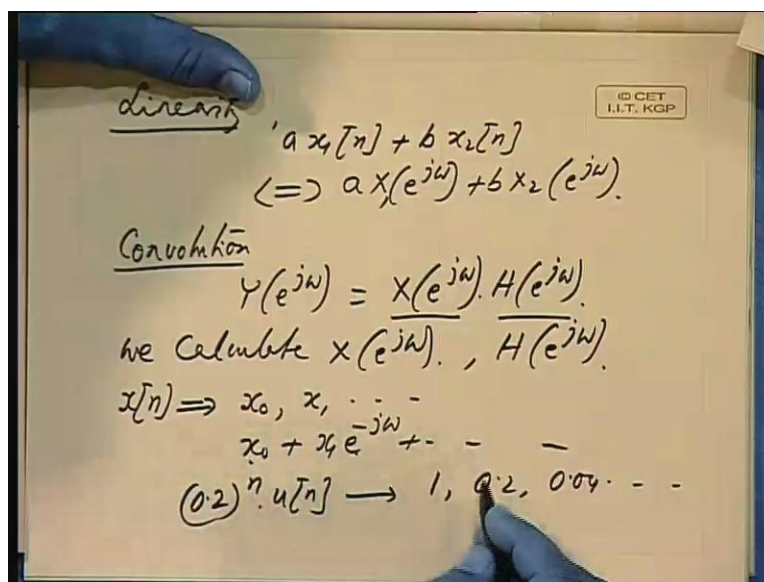 Linearity
© CET
I.I.T. KGP
a x₁[n] + b x₂[n]
<=> a X₁(e^jω) + b X₂(e^jω).
Convolution
Y(e^jω) = X(e^jω). H(e^jω).
we Calculate X(e^jω). , H(e^jω).
x[n] => x₀, x₁ · · -
x₀ + x₁ e^-jω + - - -
(0.2)^n. u[n] → 1, 0.2, 0.04 · - -